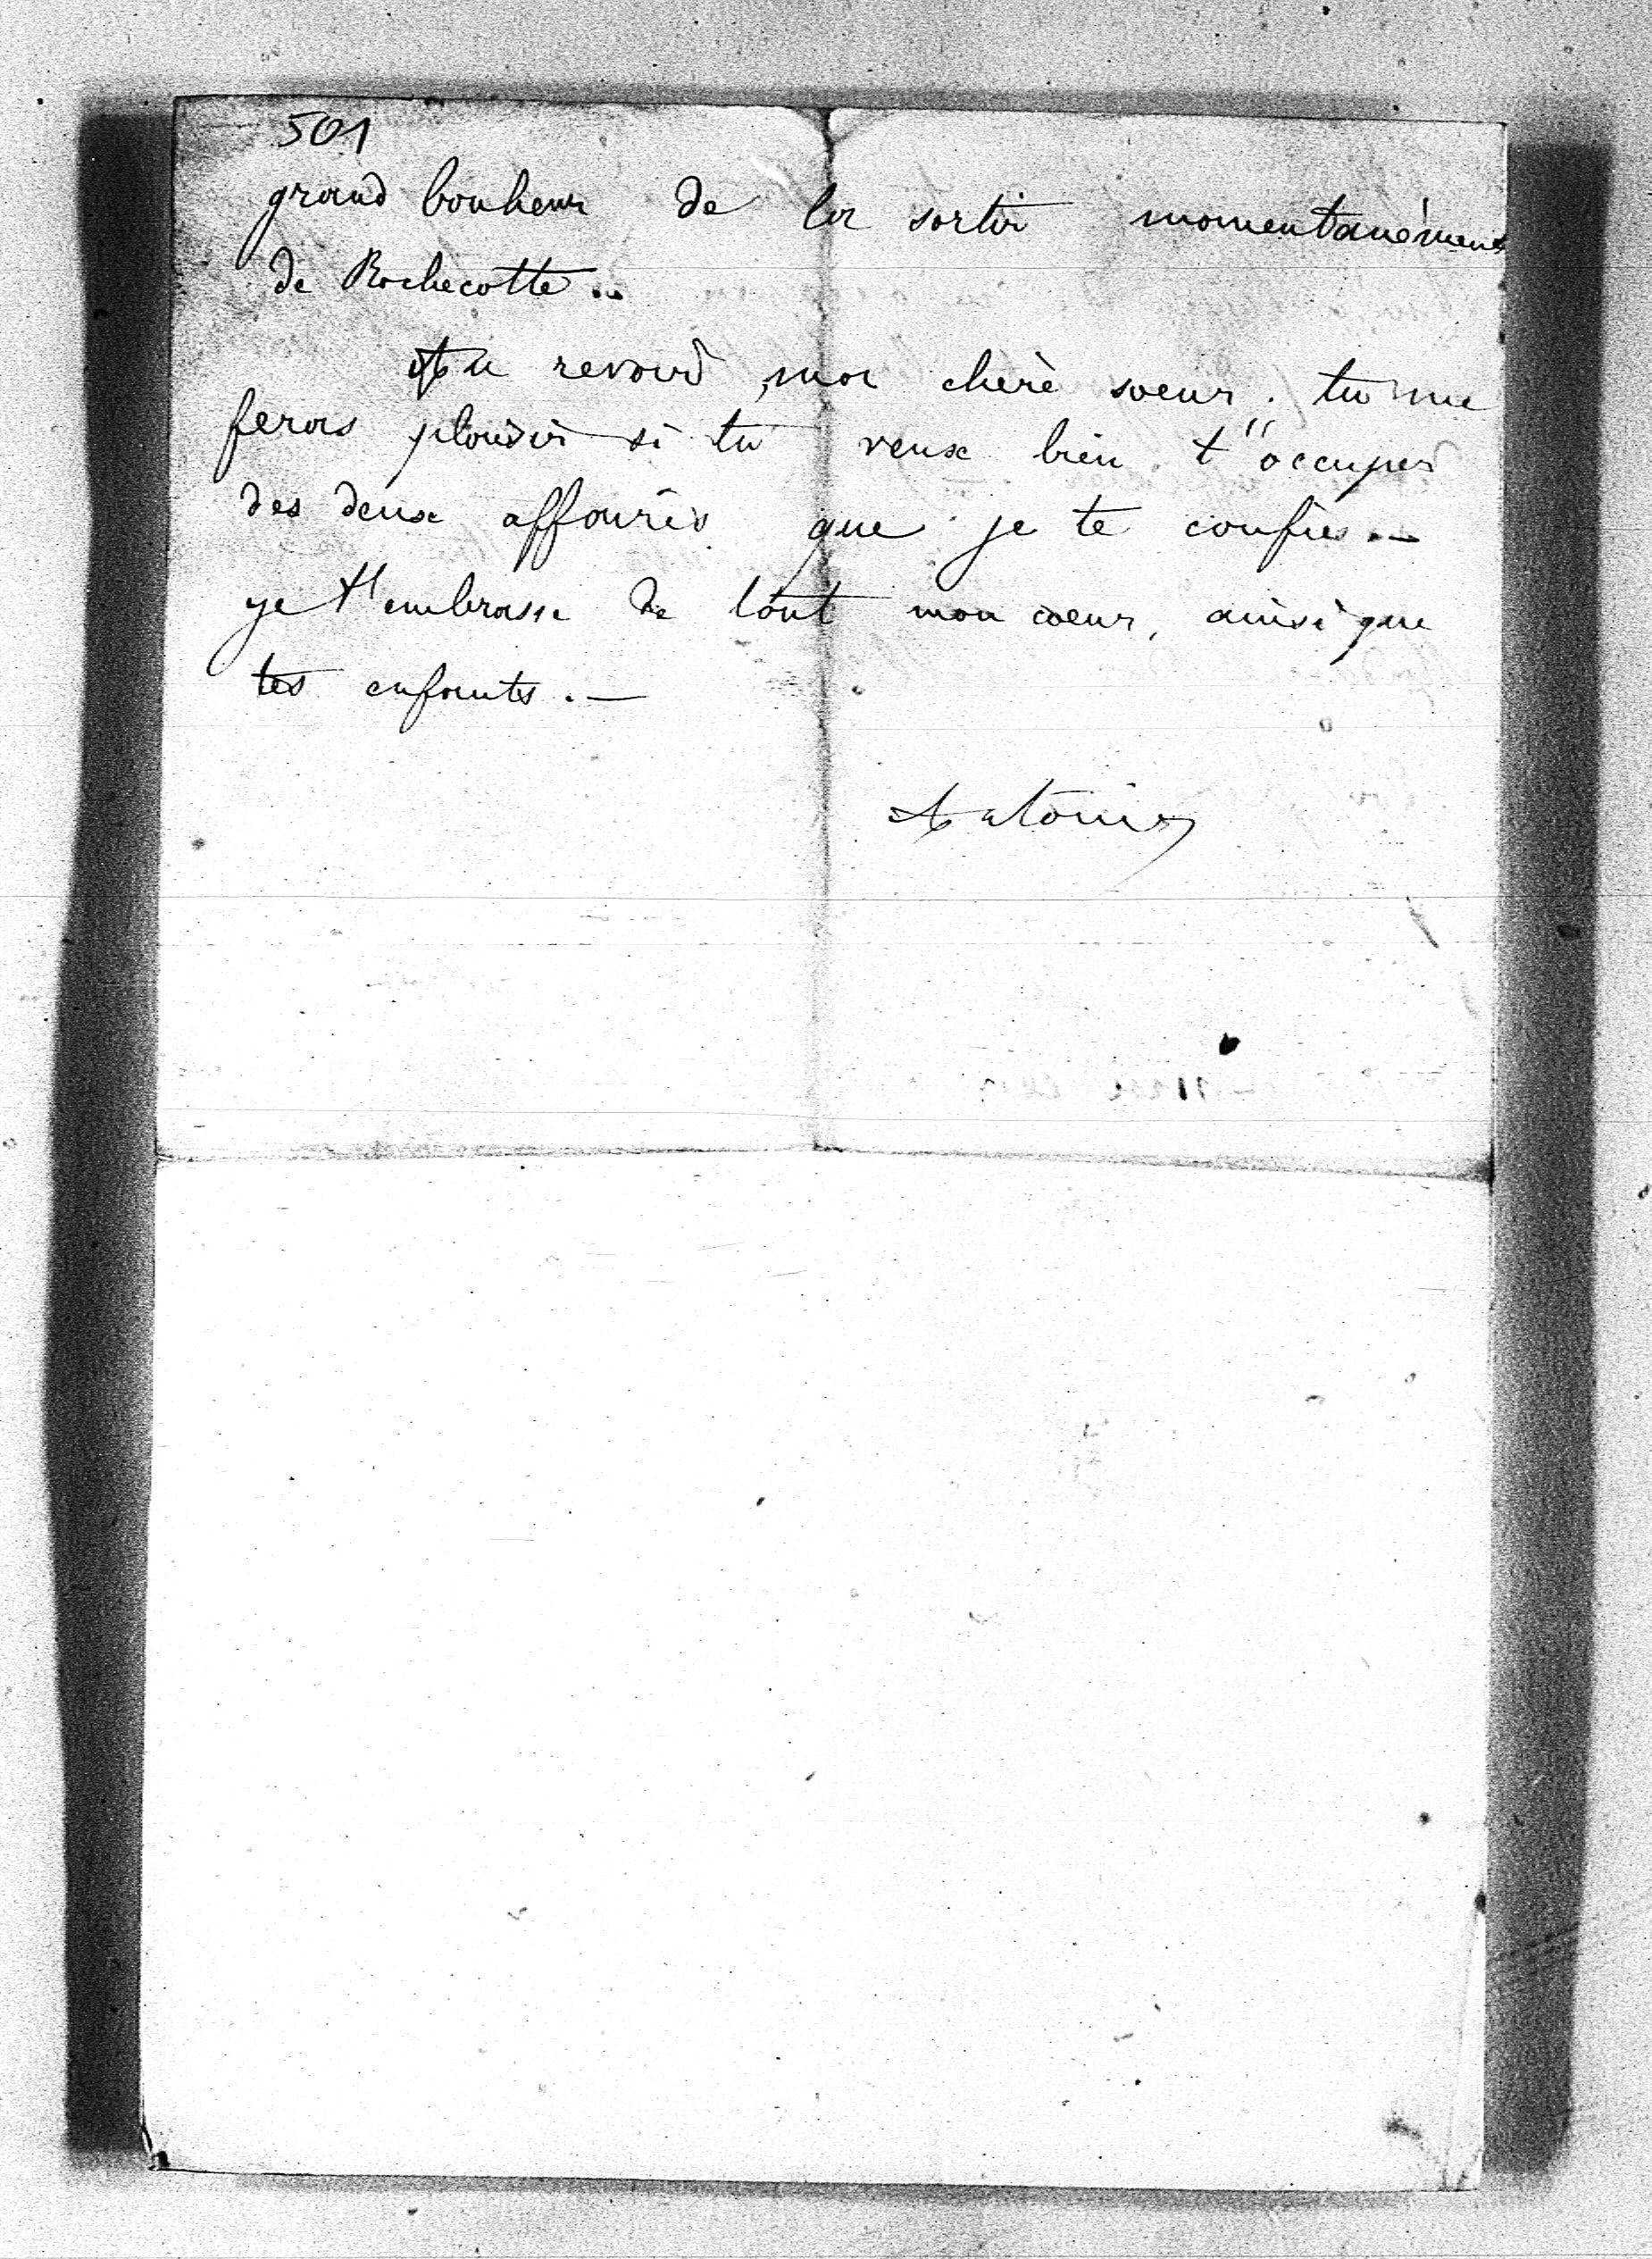 501
grand bonheur de la sortir momentanément
de Rochecotte..
Au revoir, ma chère soeur. tu me
feras plaisir si tu veux bien t'occuper
des deux affaires que je te confie. —
je t'embrasse de tout mon coeur, ainsi que
tes enfants. —
Antonin